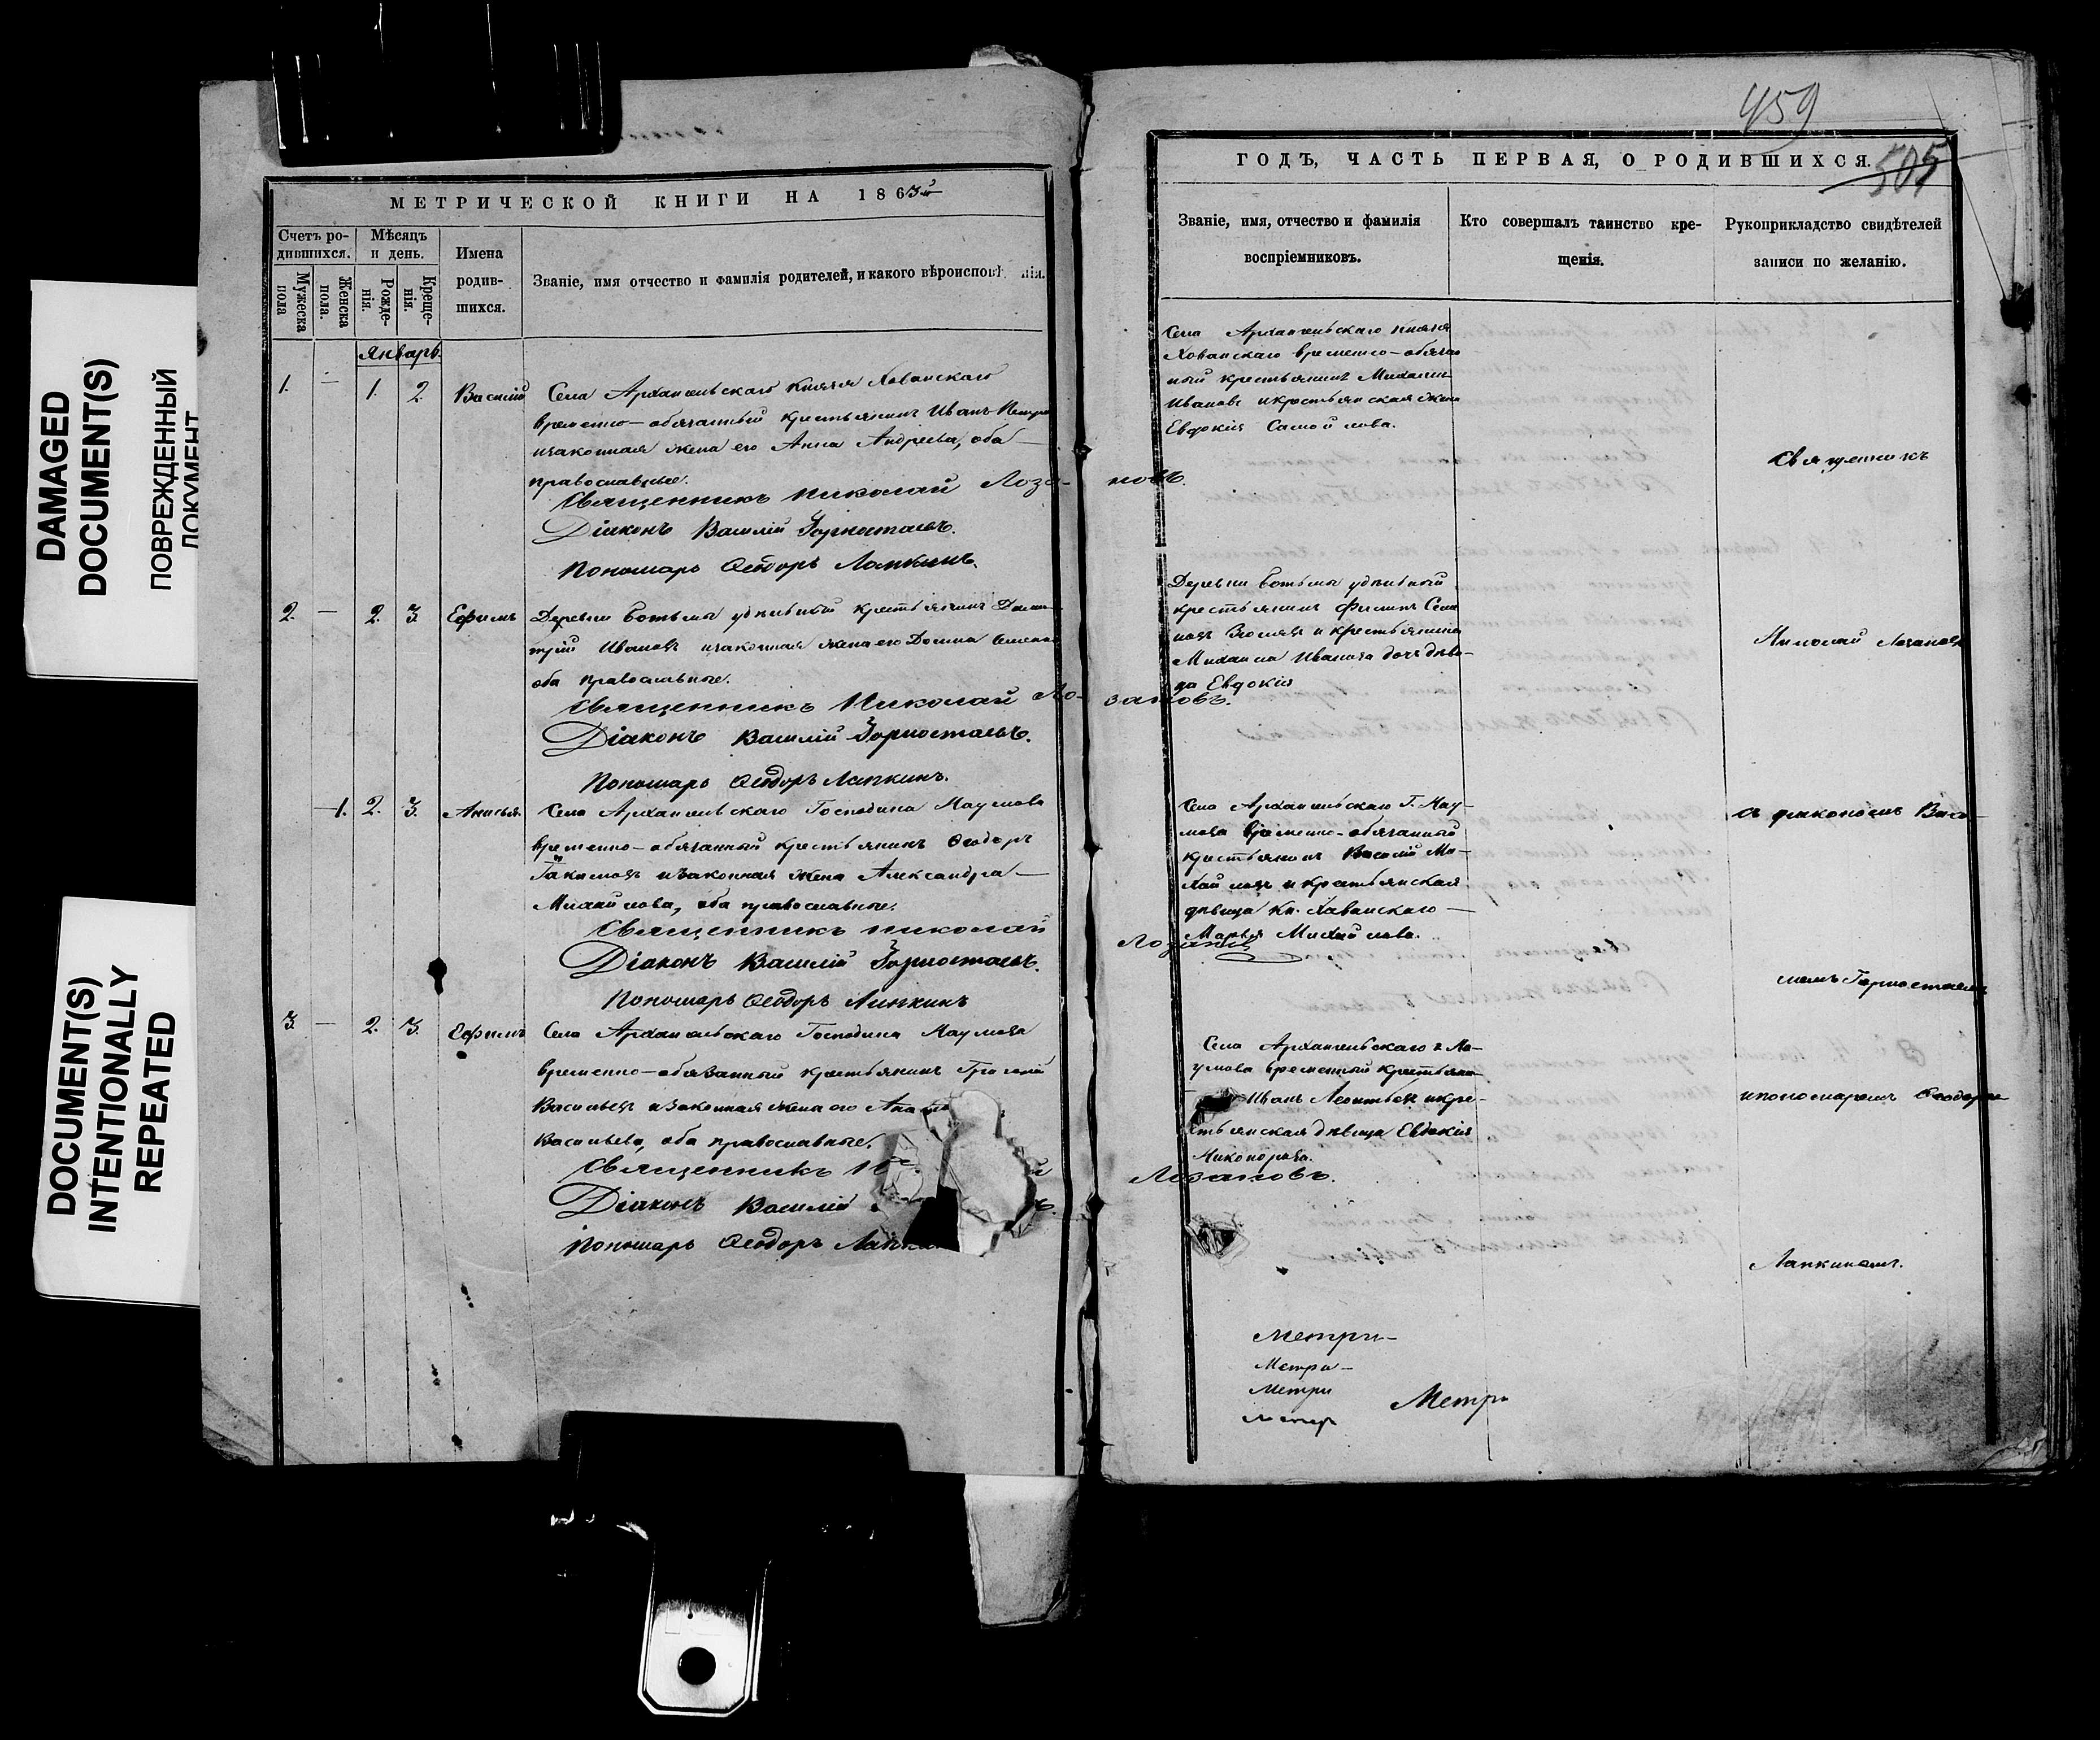 DAMAGED
DOCUMENT(S)
ПОВРЕЖДЕННЫЙ
ДОКУМЕНТ
DOCUMENT(S)
INTENTIONALLY
REPEATED
МЕТРИЧЕСКОЙ КНИГИ НА 1863й
Счетъ ро-
дившихся.
Мѣсяцъ
и день.
Имена
родив-
шихся.
Званіе, имя отчество и фамилія родителей, и какого вѣроиспов нія.
Мужеска
пола
Женска
пола.
Рожде-
нія.
Креще-
нія.
Январь.
1. — 1. 2. Василій
Села Архангельскаго Князя Хованскаго
временно-обязанный крестьянинъ Иванъ Петро
изаконная жена его Анна Андреева, оба—
православные.
Священникъ Николай Лоза-
новъ.
Діаконъ Василій Горностаевъ.
Пономарь Ѳеодоръ Лапкинъ.
2. — 2. 3. Ефимъ
Деревни Ботьмы удѣльный крестьянинъ Дими-
трій Ивановъ изаконная жена его Домна
оба православные.
Священникъ Николай Ло-
зановъ.
Діаконъ Василій Горностаевъ.
Пономарь Ѳеодоръ Лапкинъ.
—1. 2. 3. Анисья.
Села Архангельскаго Господина Наумова
временно-обязанный крестьянинъ Ѳеодоръ
Іакимовъ изаконная жена Александра—
Михайлова, оба православные.
Священникъ Николай
Лозановъ
Діаконъ Василій Горностаевъ.
Пономарь Ѳеодоръ Лапкинъ
3. — 2. 3. Ефимъ
Села Архангельскаго Господина Наумова
временно-обязанный крестьянинъ Григорій
Васильевъ изаконная жена его
Васильева, оба православные.
Священникъ
Лозановъ.
Діаконъ Василій
Пономарь Ѳеодоръ Лапкин
459
505
ГОДЪ, ЧАСТЬ ПЕРВАЯ, О РОДИВШИХСЯ.
Званіе, имя, отчество и фамилія
воспріемниковъ.
Кто совершалъ таинство кре-
щенія.
Рукоприкладство свидѣтелей
записи по желанію.
Села Архангельскаго князя
Хованскаго временно-обяза
ный крестьянинъ Михаилъ
Ивановъ икрестьянская жена
Евдокія Самойлова.
Деревни Ботьмы удѣльный
крестьянинъ Филипъ Семе
новъ и крестьянина
Михаила Иванова дочь дѣви-
ца Евдокія
Села Архангельскаго Г. Нау-
мова временно-обязанный
крестьянинъ Василій Ми-
хайловъ и крестьянская
дѣвица Кн. Хованскаго—
Марья Михайлова.
Села Архангельскаго г. На-
умова временный крестьяни-
Иванъ Леонтьевъ икре-
стьянская дѣвица Евдокія
Никонорова.
Священникъ
Николай Лозановъ
съ діакономъ Васи-
ліемъ Горностаевымъ
ипономаремъ Ѳеодоромъ
Лапкинымъ.
Метри-
Метри-
Метри
Метри